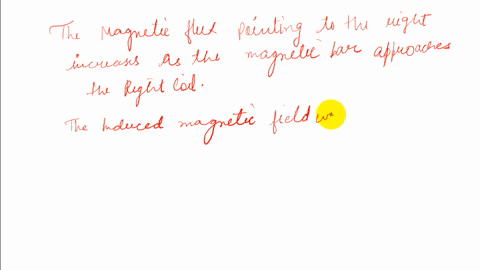 The Magnetic flux pointing to the right
increases as the magnetic bar approaches
the Right Coil.
The Induced magnetic field